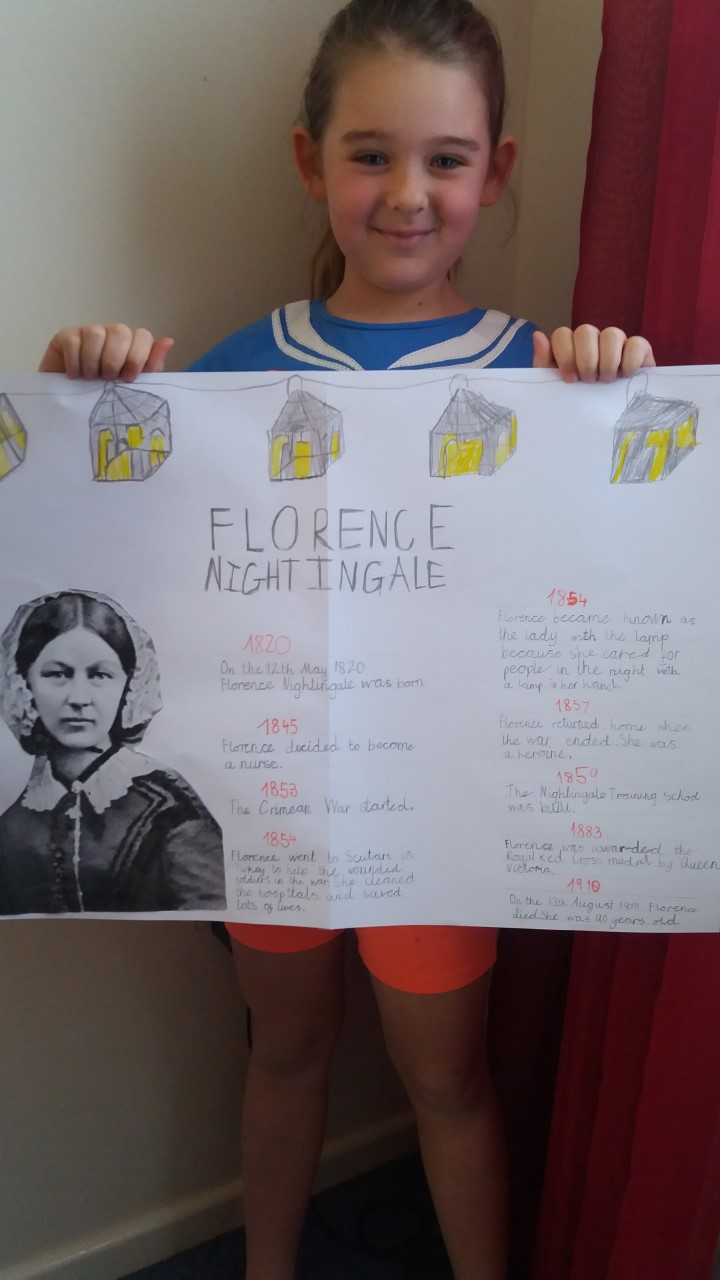 FLORENCE
NIGHTINGALE
1820
On the 12th May 1820
Florence Nightingale was born
1845
Florence decided to become
a nurse.
1853
The Crimean War started.
1854
Florence went to Scutari in
Turkey to help the wounded
soldiers in the war. She cleaned
the hospitals and saved
lots of lives.
1854
Florence became known as
the lady with the lamp
because she cared for
people in the night with
a lamp in her hand.
1857
Florence returned home when
the war ended. She was
a heroine.
1859
The Nightingale Training School
was built.
1883
Florence was awarded the
Royal Red Cross medal by Queen
Victoria.
1910
On the 13th August 1910 Florence
died. She was 90 years old